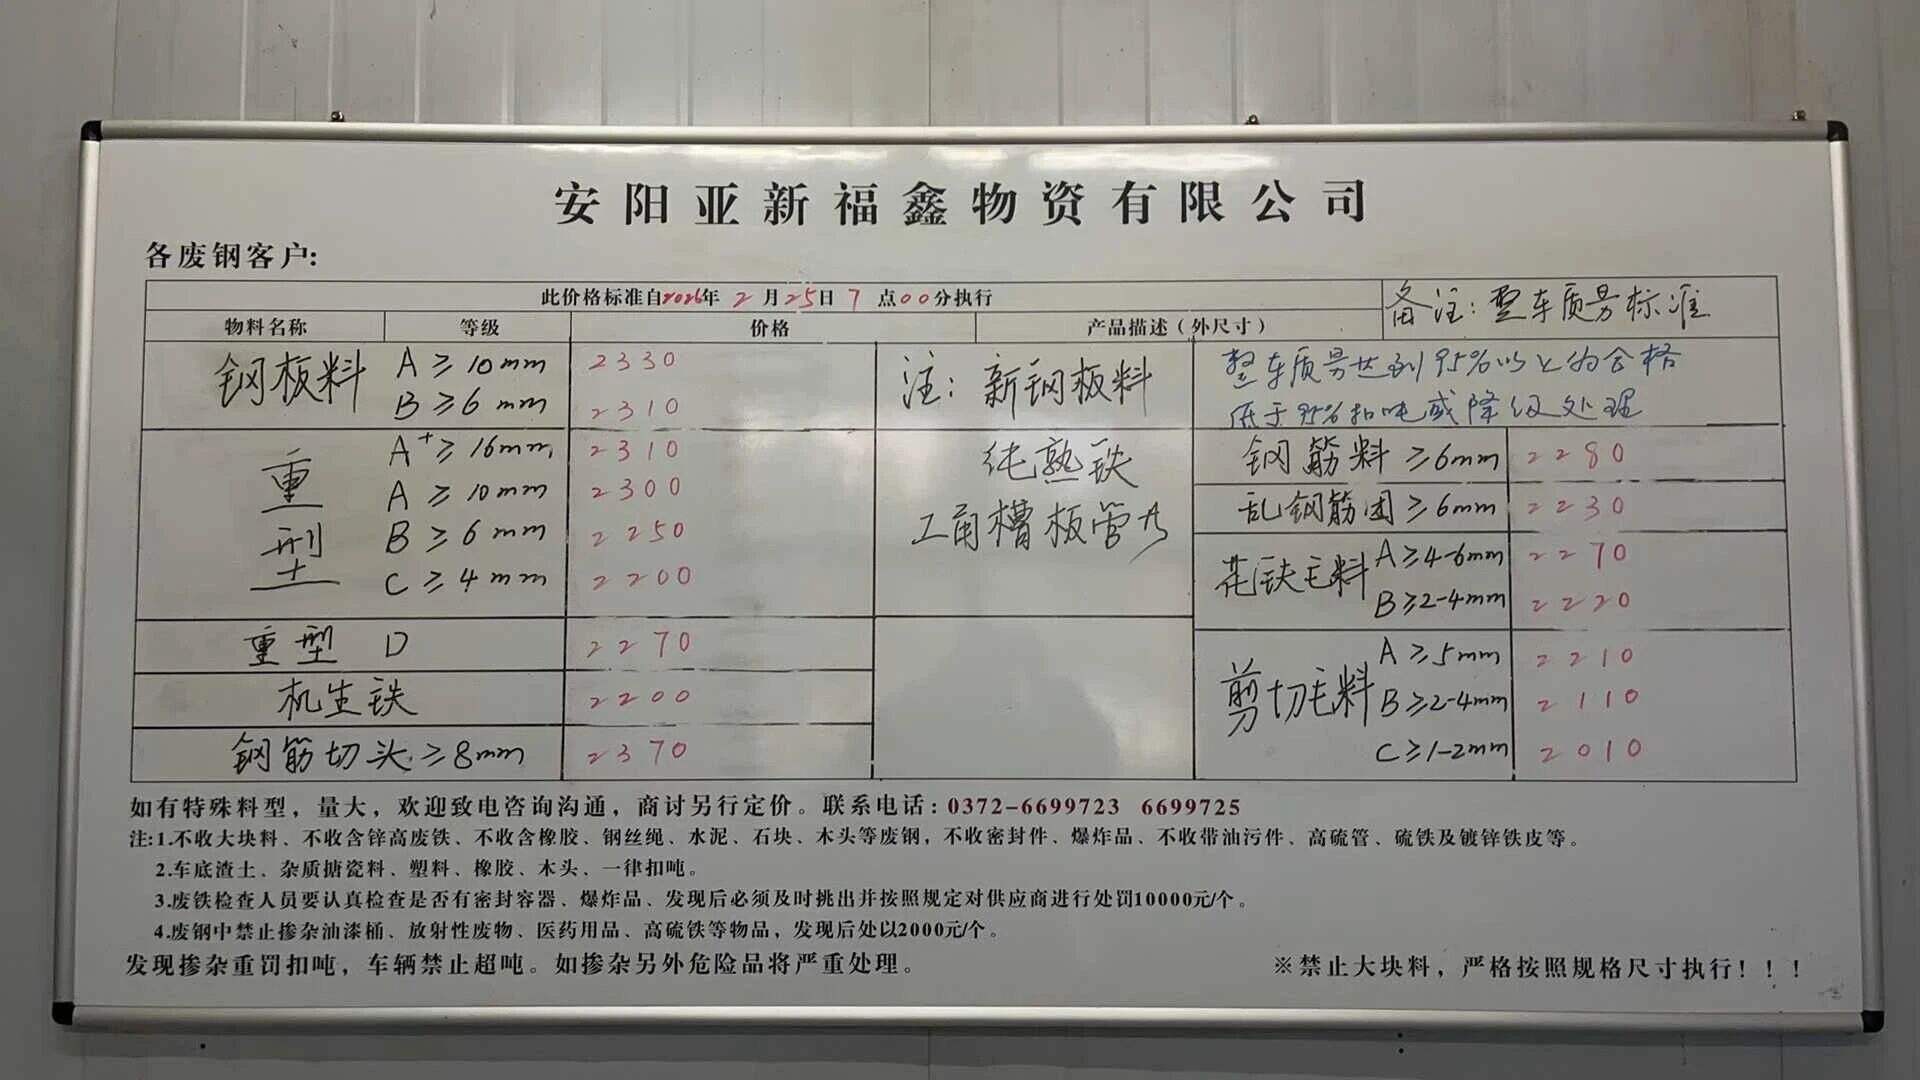 安阳亚新福鑫物资有限公司
各废钢客户:
此价格标准自2026年 2 月25日 7 点00分执行
备注: 整车质量标准
物料名称 等级 价格 产品描述（外尺寸）
钢板料 A ≥ 10mm 2330
B ≥ 6 mm 2310
注: 新钢板料
整车质量达到95%以上为合格
低于95%扣吨或降级处理
重型 A⁺ ≥ 16mm 2310
A ≥ 10mm 2300
B ≥ 6 mm 2250
C ≥ 4 mm 2200
纯熟铁
工角槽板管
钢筋料 ≥6mm 2280
乱钢筋团 ≥6mm 2230
花铁毛料 A≥4-6mm 2270
B≥2-4mm 2220
重型 D 2270
机生铁 2200
钢筋切头 ≥8mm 2370
剪切毛料 A ≥5mm 2210
B≥2-4mm 2110
C≥1-2mm 2010
如有特殊料型，量大，欢迎致电咨询沟通，商讨另行定价。联系电话: 0372-6699723 6699725
注:1.不收大块料、不收含锌高废铁、不收含橡胶、钢丝绳、水泥、石块、木头等废钢，不收密封件、爆炸品、不收带油污件、高硫管、硫铁及镀锌铁皮等。
2.车底渣土、杂质搪瓷料、塑料、橡胶、木头、一律扣吨。
3.废铁检查人员要认真检查是否有密封容器、爆炸品、发现后必须及时挑出并按照规定对供应商进行处罚10000元/个。
4.废钢中禁止掺杂油漆桶、放射性废物、医药用品、高硫铁等物品，发现后处以2000元/个。
发现掺杂重罚扣吨，车辆禁止超吨。如掺杂另外危险品将严重处理。
※禁止大块料，严格按照规格尺寸执行！！！